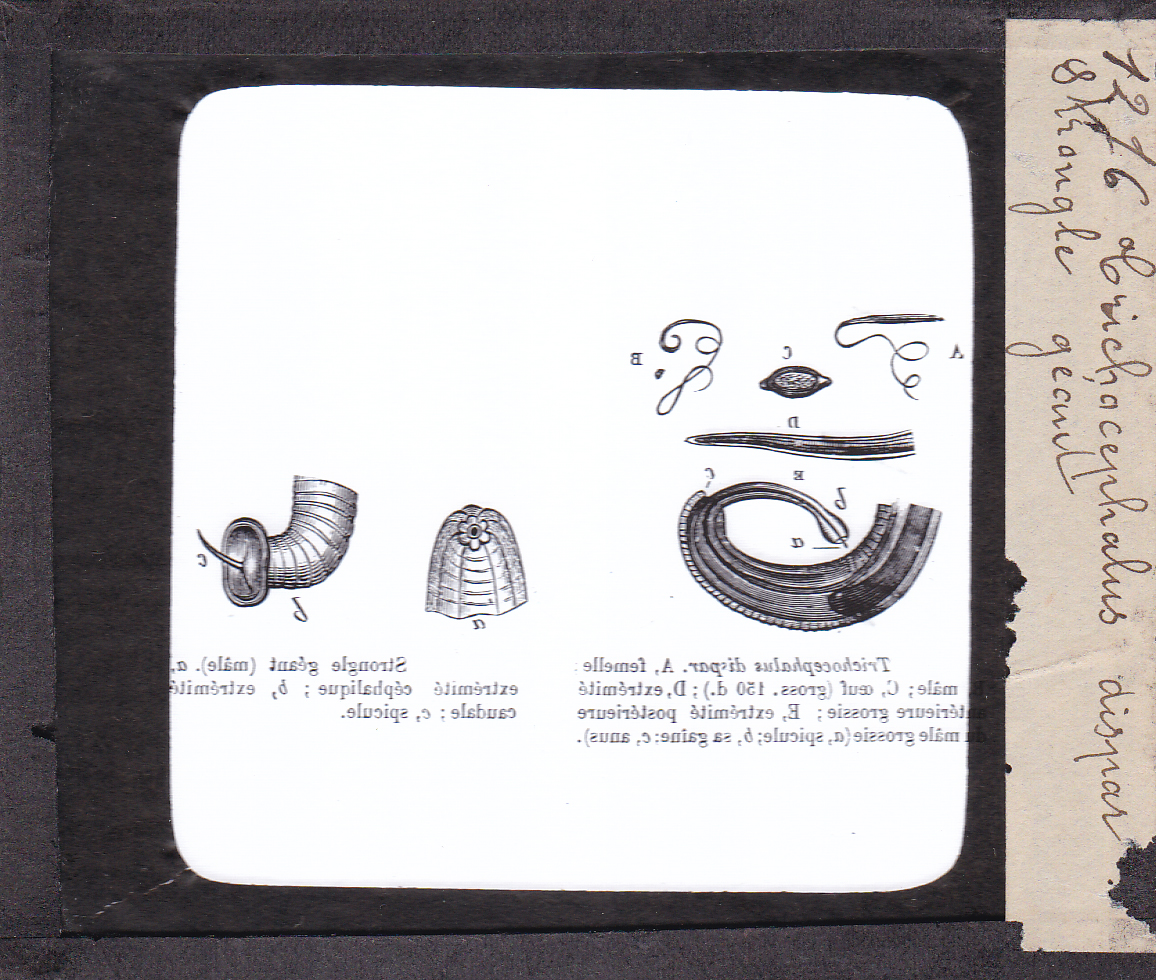 1276 Trichocephalus dispar.
Strongle geant
A
B
C
D
E
a
b
c
Trichocephalus dispar. A, femelle :
B, mâle; C, œuf (gross. 150 d.); D, extrémité
antérieure grossie; E, extrémité postérieure
du mâle grossie (a, spicule; b, sa gaîne; c, anus).
a
b
c
Strongle géant (mâle). a,
extrémité céphalique; b, extrémité
caudale; c, spicule.